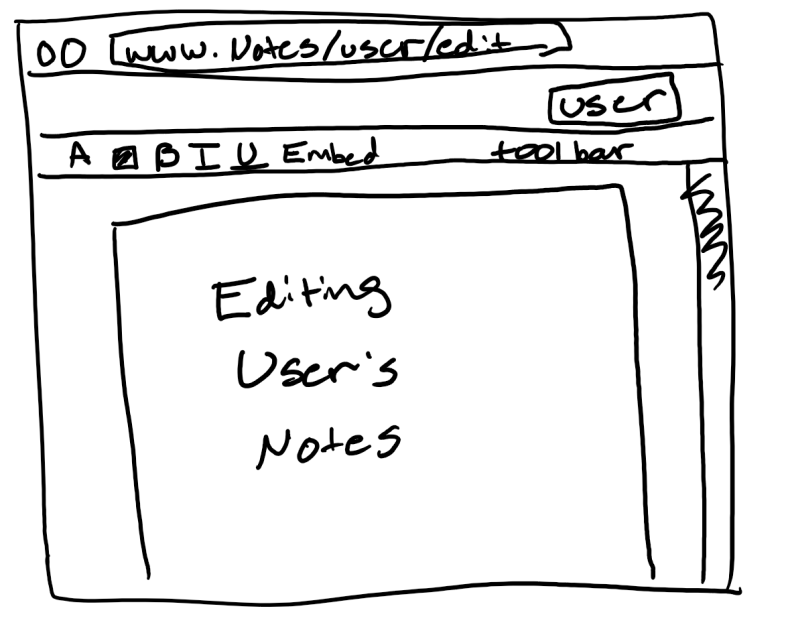 www.Notes/user/edit
user
A B I U Embed toolbar
Editing
User's
Notes